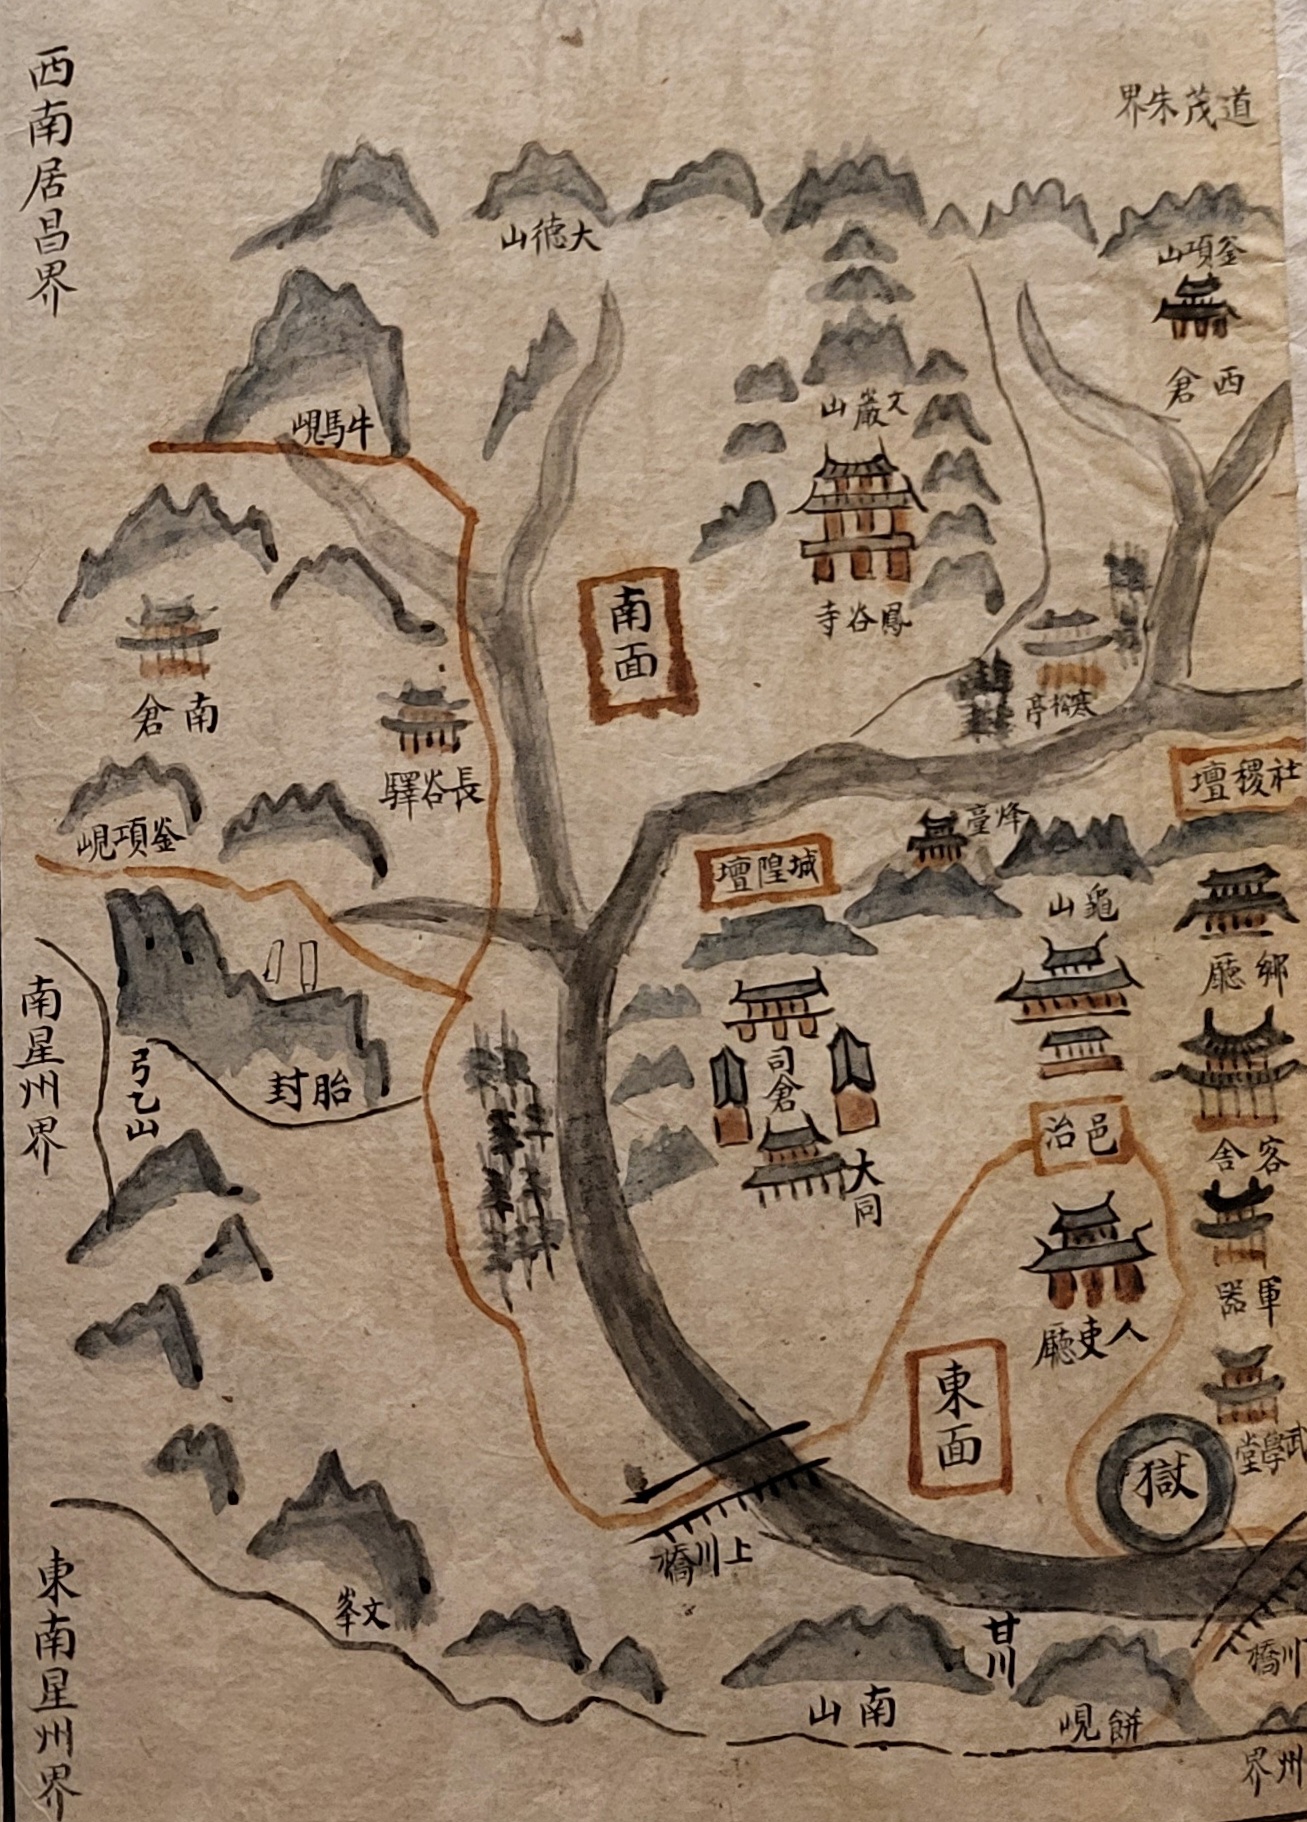 西南居昌界
道茂朱界
大德山
釜項山
西倉
牛馬峴
文巖山
鳳谷寺
南面
寒松亭
南倉
長谷驛
釜項峴
社稷壇
烽臺
城隍壇
龜山
鄉廳
南星州界
弓乙山
胎封
司倉
大同
邑治
客舍
人吏廳
軍器
東面
武學堂
獄
上川橋
東南星州界
文峯
甘川
南山
餠峴
川橋
州界